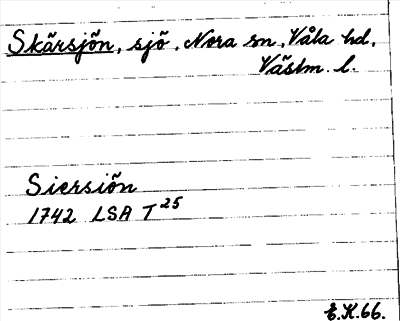 Skärsjön, sjö, Nora sn, Våla hd,
Västm. l.
Siersiön
1742 LSA T25
E.K.66.